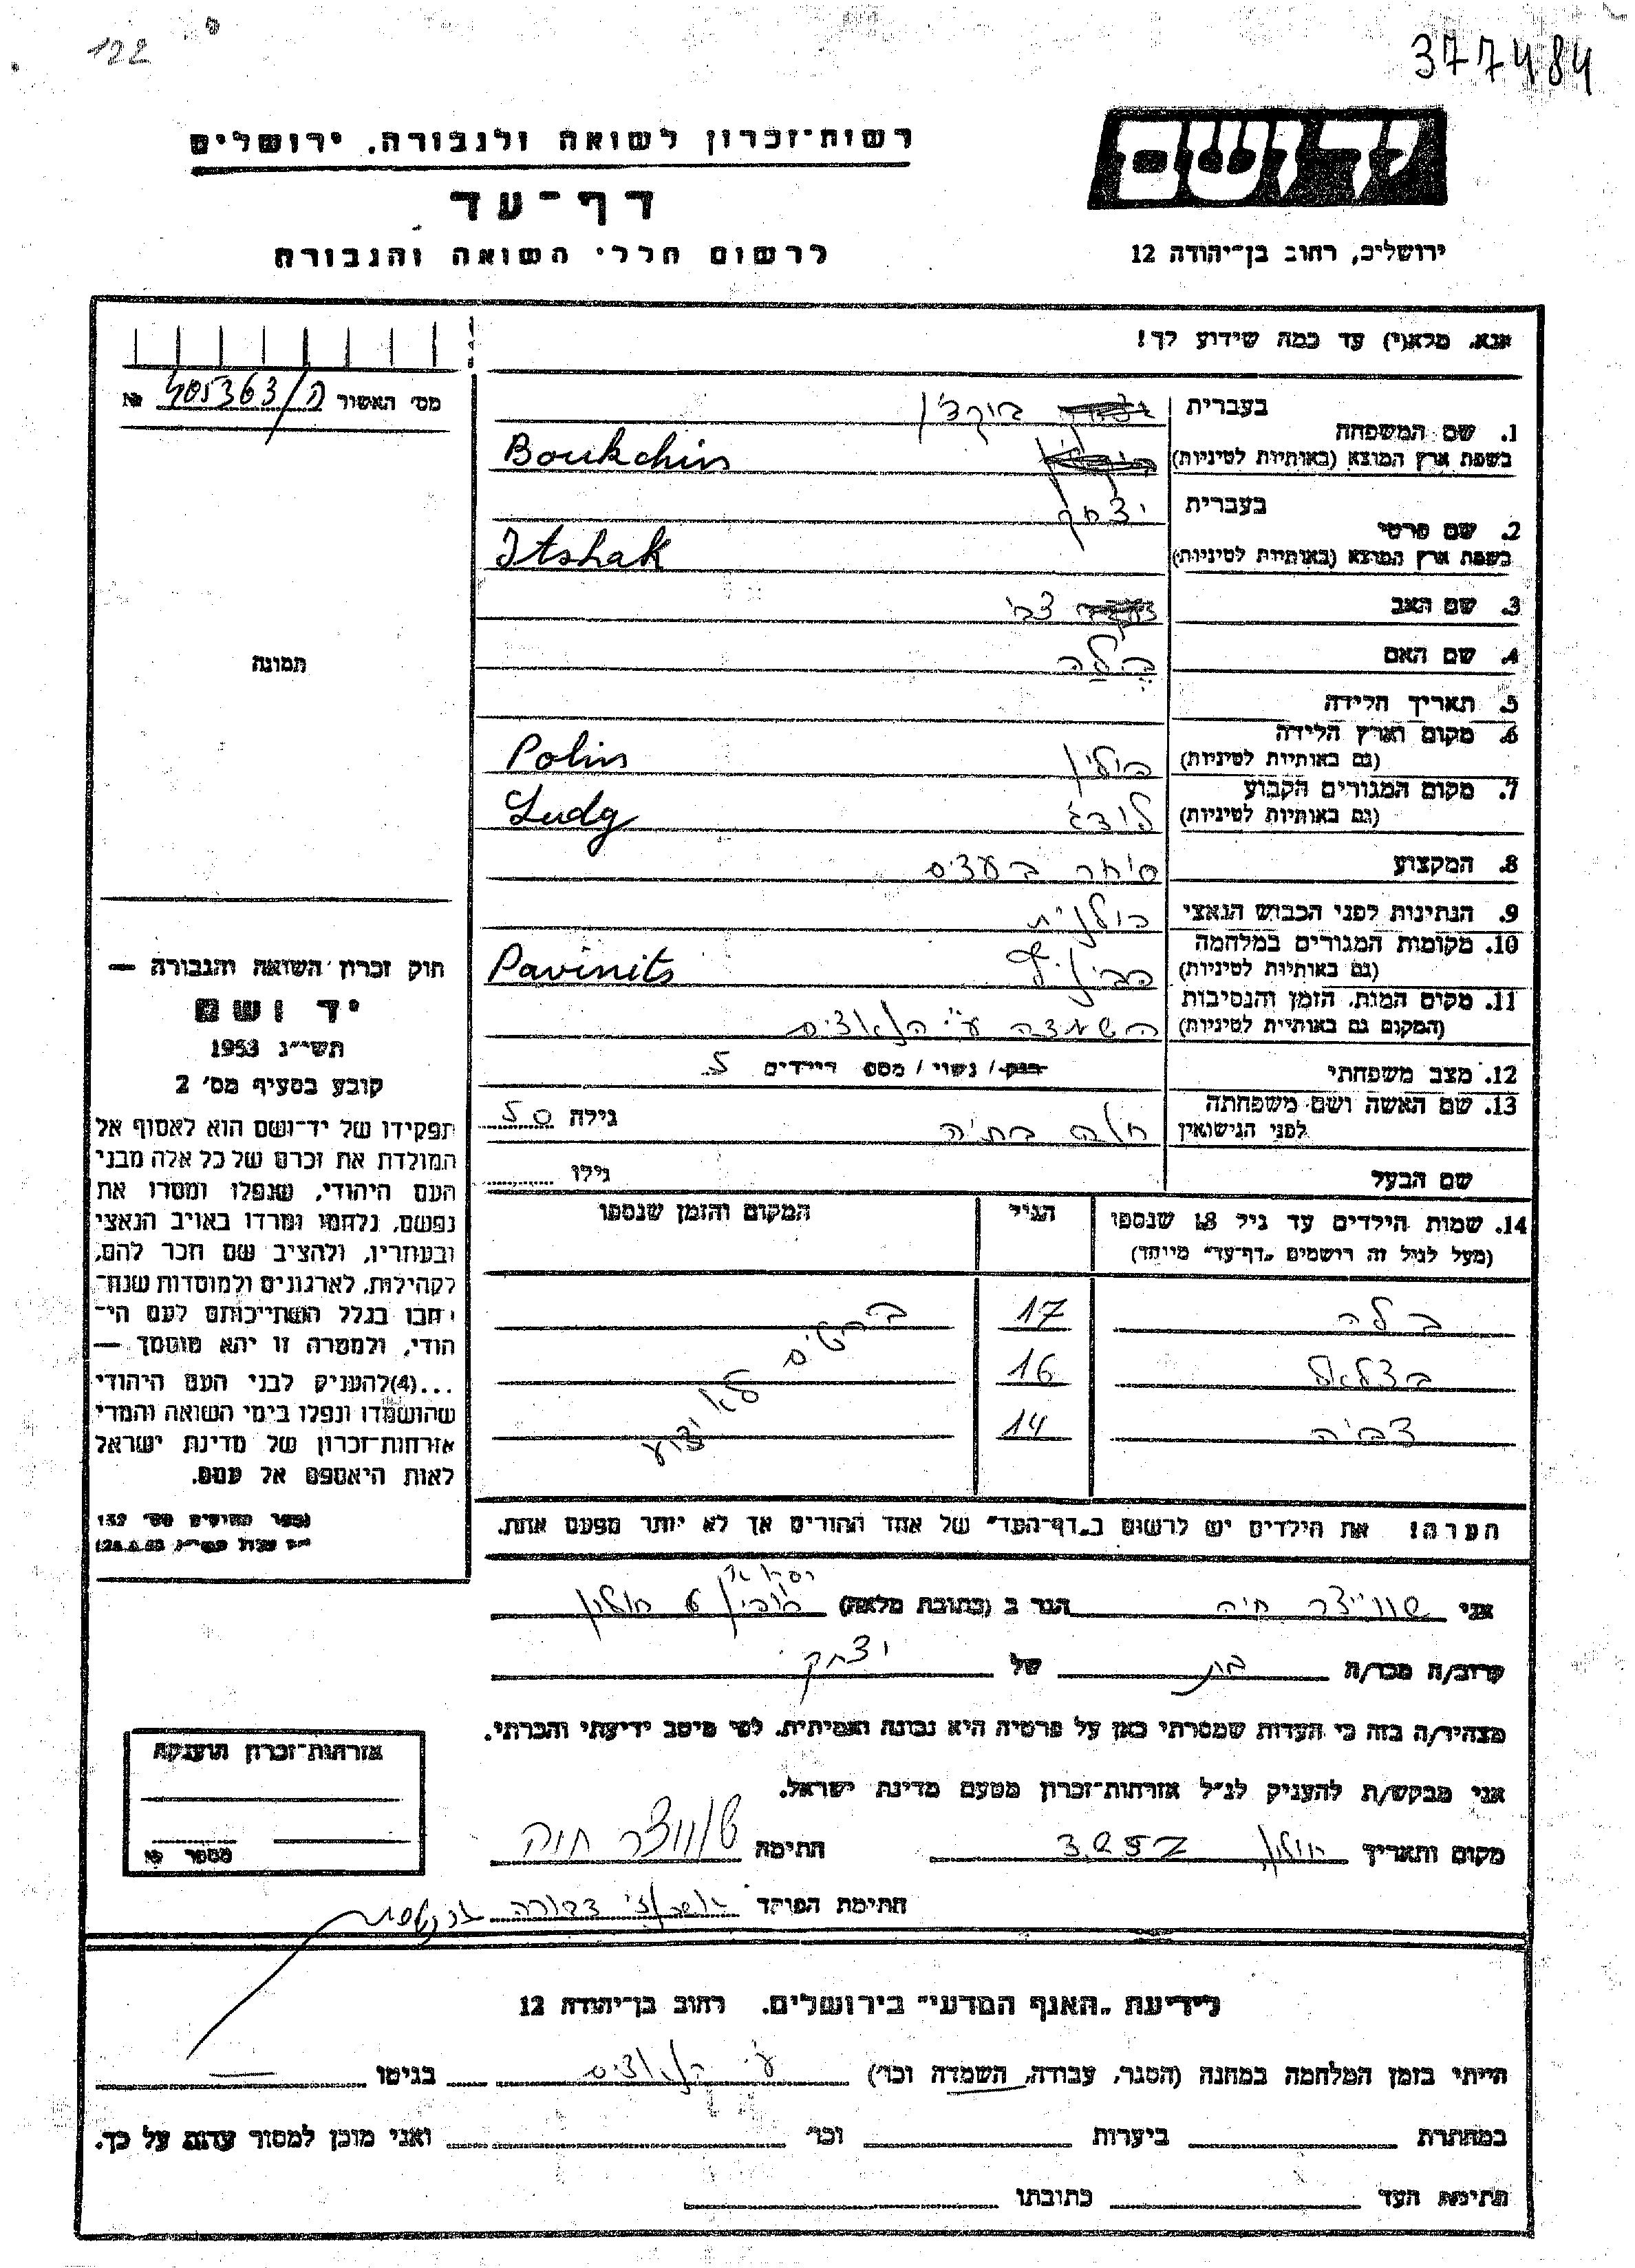 122
377484
רשות־זכרון לשואה ולגבורה, ירושלים
דף־עד
לרשום חללי השואה והגבורה
יד ושם
ירושלים, רחוב בן־יהודה 12
אנא, מלא(י) עד כמה שידוע לך!
מס' האשור 405363/ה №
1. שם המשפחה בעברית בוקצ'ין
בשפת ארץ המוצא (באותיות לטיניות) Boukchin
2. שם פרטי בעברית יצחק
בשפת ארץ המוצא (באותיות לטיניות) Itshak
3. שם האב צבי
4. שם האם בלה
5. תאריך הלידה
6. מקום וארץ הלידה (גם באותיות לטיניות) פולין Polin
7. מקום המגורים הקבוע (גם באותיות לטיניות) לודג Ludg
8. המקצוע סוחר בעצים
9. הנתינות לפני הכבוש הנאצי פולנית
10. מקומות המגורים במלחמה (גם באותיות לטיניות) Pavinits
11. מקום המות, הזמן והנסיבות (המקום גם באותיות לטיניות) השמדה ע"י הנאצים
12. מצב משפחתי רווק / נשוי / מספר ילדים 5
13. שם האשה ושם משפחתה לפני הנישואין בתיה גילה 50
שם הבעל גילו
14. שמות הילדים עד גיל 18 שנספו (מעל לגיל זה רושמים „דף־עד" מיוחד) הגיל המקום והזמן שנספו
בלה 17 פרטים לא ידוע
בצלאל 16
צביה 14
הערה! את הילדים יש לרשום ב„דף־העד" של אחד ההורים אך לא יותר מפעם אחת.
תמונה
חוק זכרון השואה והגבורה —
יד ושם
תשי"ג 1953
קובע בסעיף מס' 2
תפקידו של יד־ושם הוא לאסוף אל
המולדת את זכרם של כל אלה מבני
העם היהודי, שנפלו ומסרו את
נפשם, נלחמו ומרדו באויב הנאצי
ובעוזריו, ולהציב שם וזכר להם,
לקהילות, לארגונים ולמוסדות שנח־
רבו בגלל השתייכותם לעם הי־
הודי, ולמטרה זו יהא מוסמך —
...(4)להעניק לבני העם היהודי
שהושמדו ונפלו בימי השואה והמרי
אזרחות־זכרון של מדינת ישראל
לאות היאספם אל עמם.
אני שווייצר חיה הגר ב (כתובת מלאה) חולון
קרוב/ה מכר/ה בת של יצחק
מצהיר/ה בזה כי העדות שמסרתי כאן על פרטיה היא נכונה ואמיתית, לפי מיטב ידיעתי והכרתי.
אני מבקש/ת להעניק לנ"ל אזרחות־זכרון מטעם מדינת ישראל.
מקום ותאריך חולון חתימה שוויצר חיה
חתימת הפוקד דבורה
אזרחות־זכרון הוענקה
מספר №
לידיעת „האגף המדעי" בירושלים, רחוב בן־יהודה 12
הייתי בזמן המלחמה במחנה (הסגר, עבודה, השמדה וכו') ע"י הנאצים בגיטו —
במחתרת ביערות וכו' ואני מוכן למסור עדות על כך.
חתימת העד כתובתו